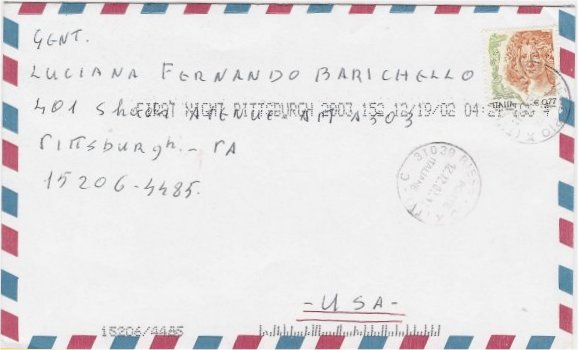 GENT.
LUCIANA FERNANDO BARICHELLO
FIRST NIGHT PITTSBURGH 2003 152 12/19/02 04:2
401 Shady AVENUE APT A303
PITTSBURGh - PA
15206-4485.
ITALIA € 0,77
31039
-USA-
15206/4485